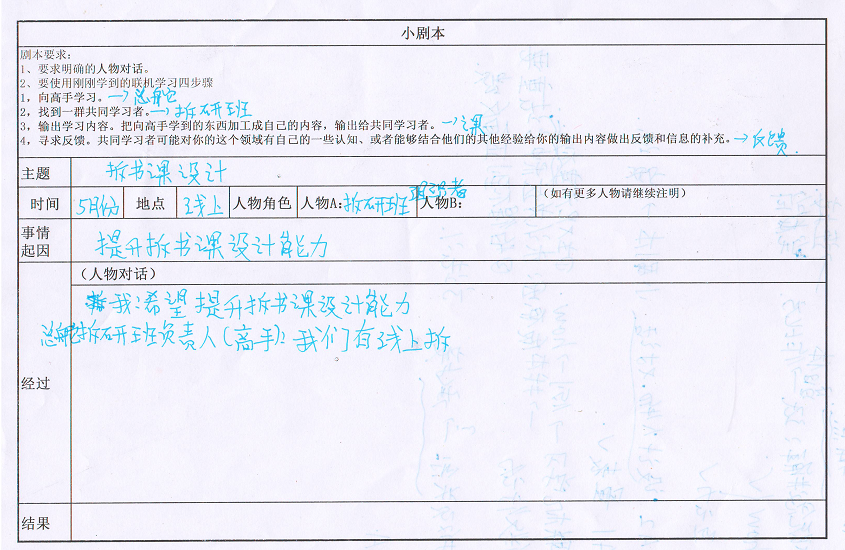 小剧本
剧本要求:
1、要求明确的人物对话。
2、要使用刚刚学到的联机学习四步骤
1，向高手学习。→总舵
2，找到一群共同学习者。→拆研班
3，输出学习内容。把向高手学到的东西加工成自己的内容，输出给共同学习者。→课
4，寻求反馈。共同学习者可能对你的这个领域有自己的一些认知、或者能够结合他们的其他经验给你的输出内容做出反馈和信息的补充。→反馈.
主题 拆书课设计
时间 5月份 地点 线上 人物角色 人物A:拆研班 人物B: (如有更多人物请继续注明)
事情起因 提升拆书课设计能力
(人物对话)
我:希望提升拆书课设计能力
总舵拆研班负责人(高手):我们有线上拆
经过
结果